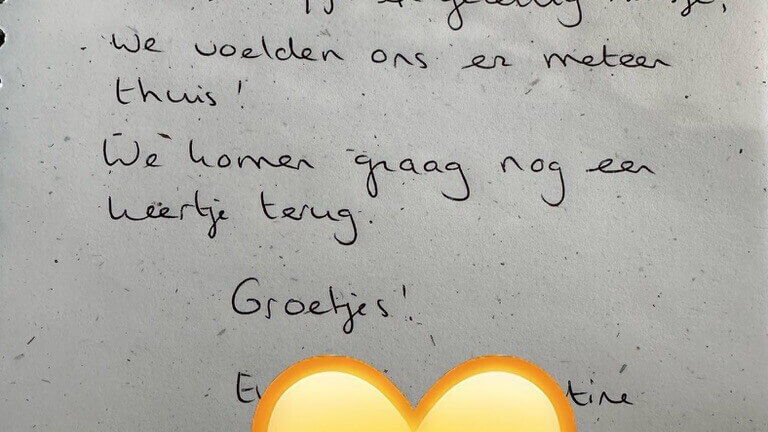 We voelden ons er meteen
thuis!
We komen graag nog een
keertje terug.
Groetjes!